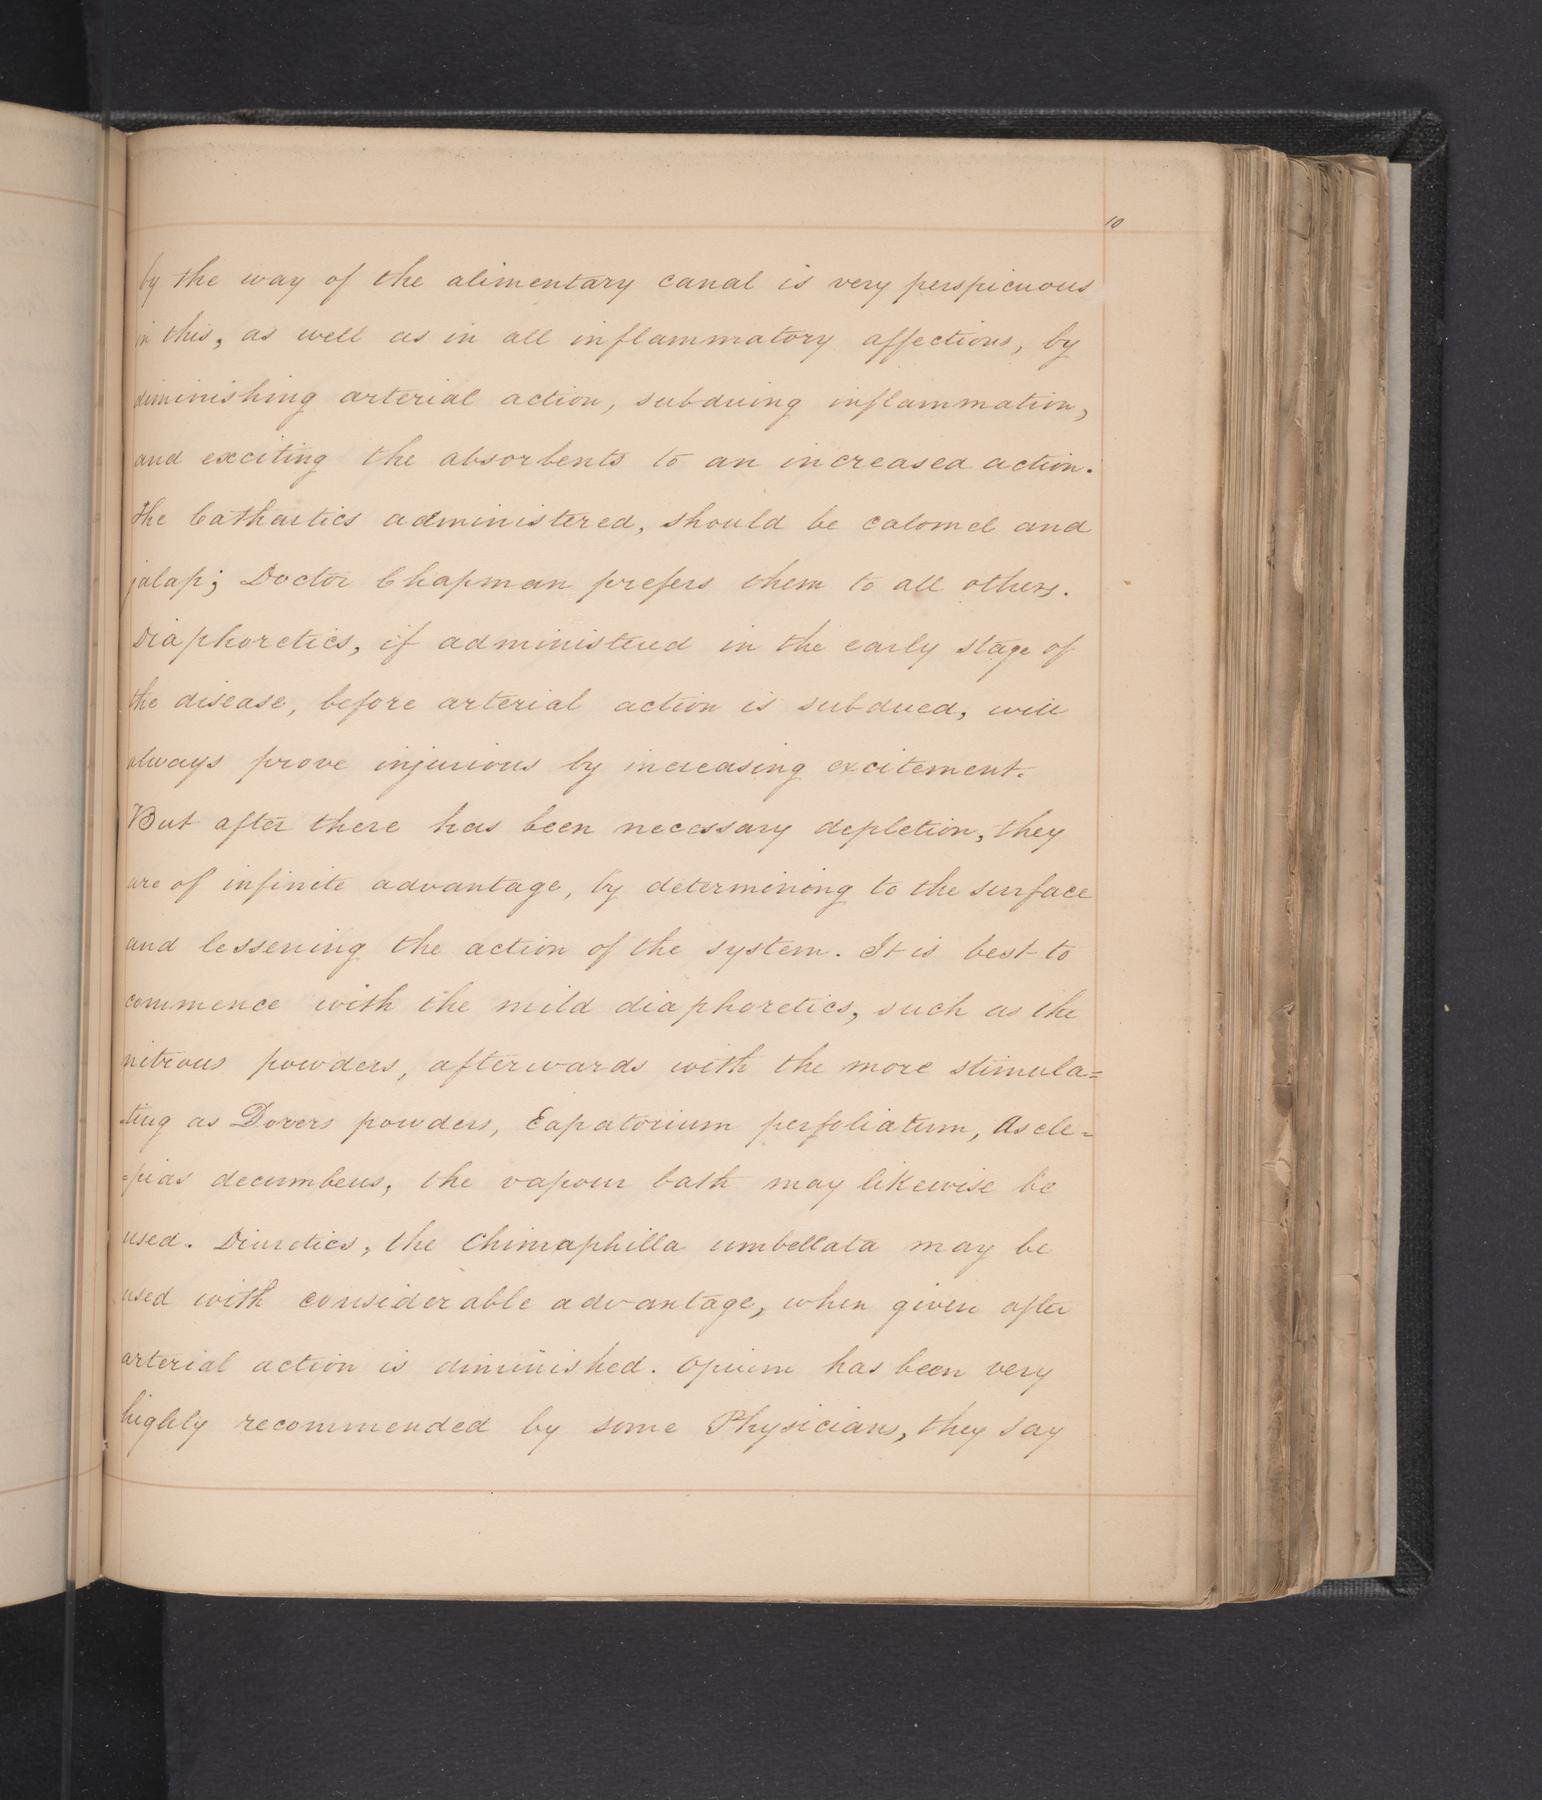 10
by the way of the alimentary canal is very perspicuous
in this, as well as in all inflammatory affections, by
diminishing arterial action, subduing inflammation,
and exciting the absorbents to an increased action.
The Cathartics administered, should be calomel and
jalap; Doctor Chapman prefers them to all others.
Diaphoretics, if administered in the early stage of
the disease, before arterial action is subdued, will
always prove injurious by increasing excitement.
But after there has been necessary depletion, they
are of infinite advantage, by determining to the surface
and lessening the action of the system. It is best to
commence with the mild diaphoretics, such as the
nitrous powders, afterwards with the more stimula=
=ting as Dovers powders, Eapatorium perfoliatum, Ascle=
=pias decumbens, the vapour bath may likewise be
used. Diuretics, the Chimaphilla umbellata may be
used with considerable advantage, when given after
arterial action is diminished. Opium has been very
highly recommended by some Physicians, they say